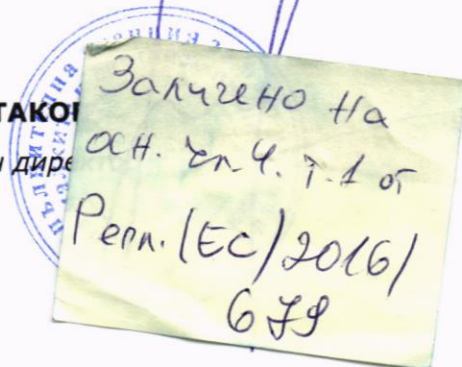 ТАКО
дире
Заличено на
осн. чл. 4. т. 1 от
Регл. (ЕС) 2016/
679